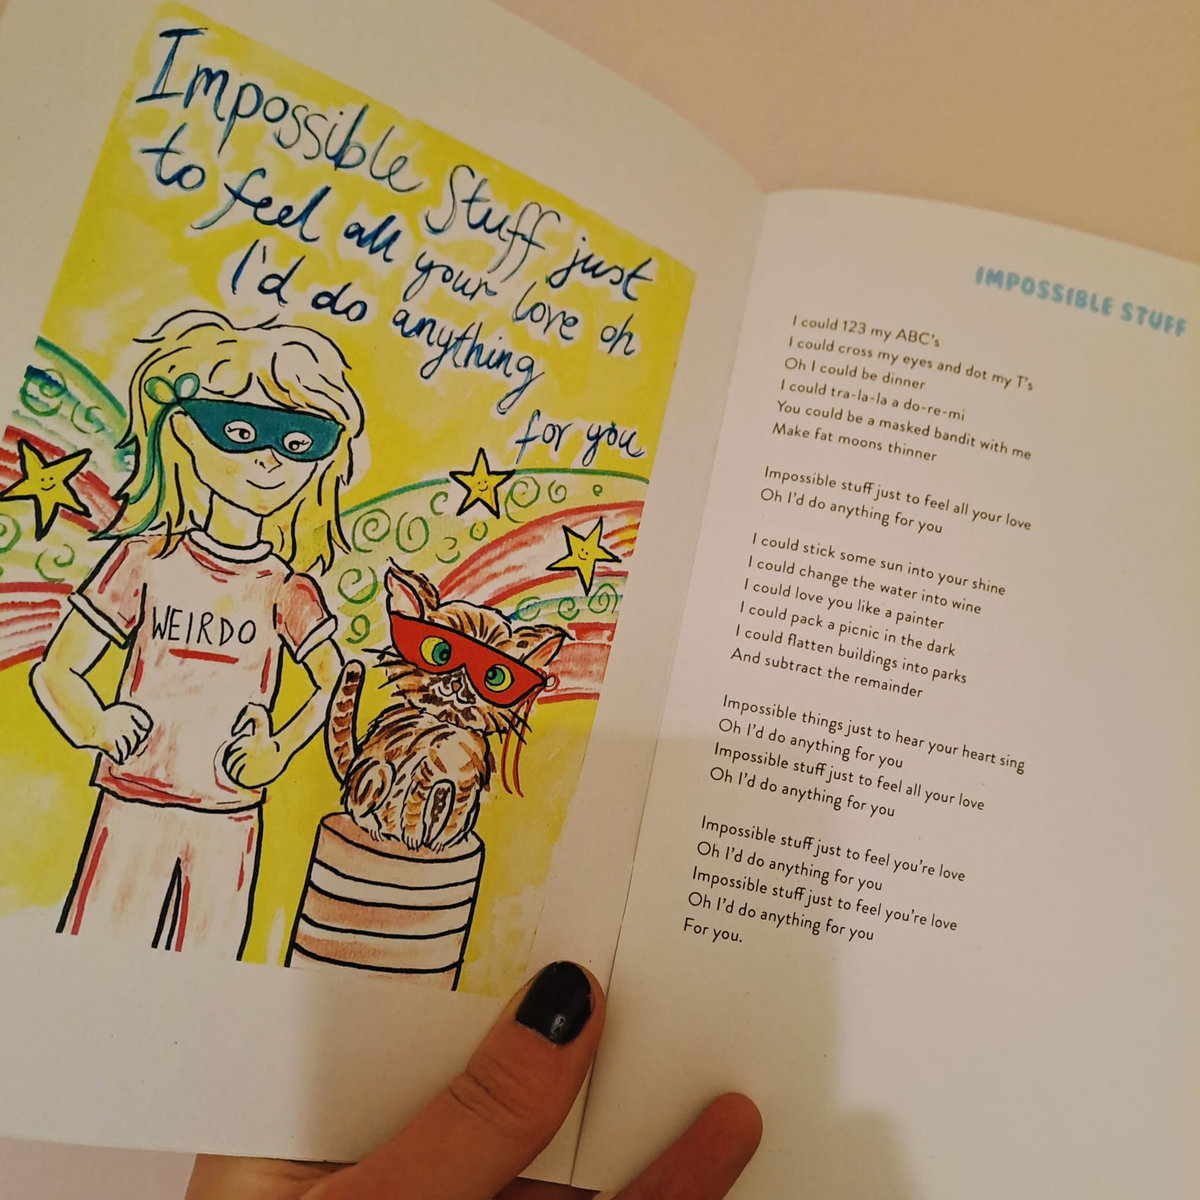 Impossible Stuff just
to feel all your love oh
I'd do anything
for you
WEIRDO
IMPOSSIBLE STUFF
I could 123 my ABC's
I could cross my eyes and dot my T's
Oh I could be dinner
I could tra-la-la a do-re-mi
You could be a masked bandit with me
Make fat moons thinner
Impossible stuff just to feel all your love
Oh I'd do anything for you
I could stick some sun into your shine
I could change the water into wine
I could love you like a painter
I could pack a picnic in the dark
I could flatten buildings into parks
And subtract the remainder
Impossible things just to hear your heart sing
Oh I'd do anything for you
Impossible stuff just to feel all your love
Oh I'd do anything for you
Impossible stuff just to feel you're love
Oh I'd do anything for you
Impossible stuff just to feel you're love
Oh I'd do anything for you
For you.